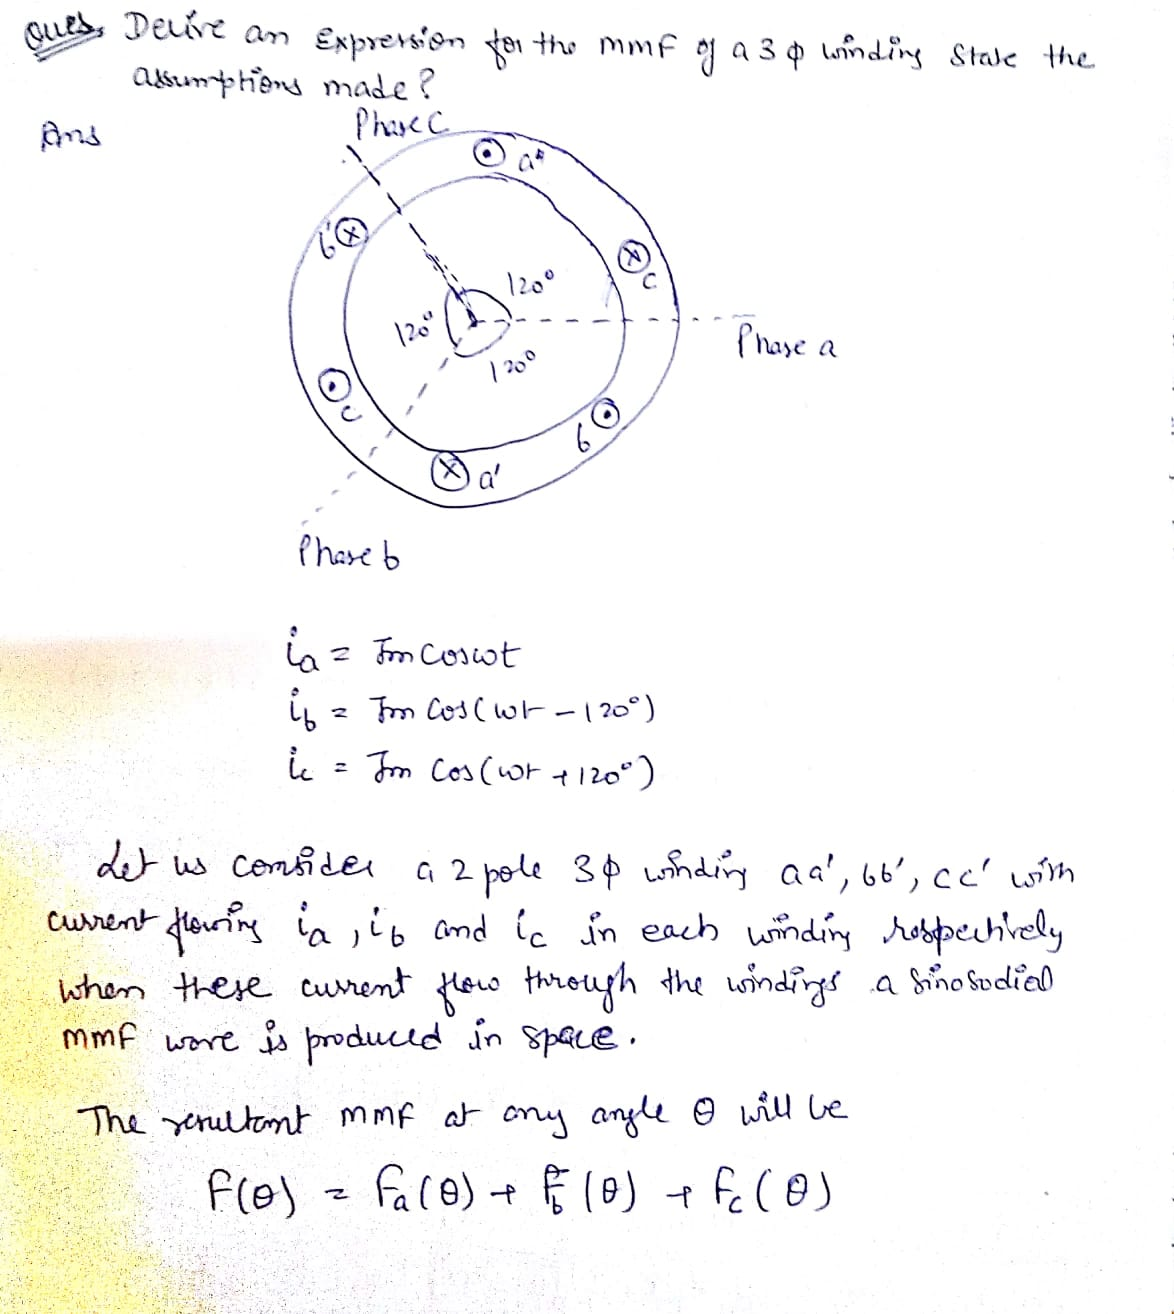 Ques, Derive an Expression for the mmf of a 3 φ winding State the
assumptions made?
Ans
Phase C
a"
b'
c
120°
120°
120°
Phase a
c
b
a'
Phase b
ia = Im Coswt
ib = Im Cos(wt - 120°)
ic = Im Cos(wt + 120°)
Let us consider a 2 pole 3 φ winding aa', bb', cc' with
current flowing ia, ib and ic in each winding respectively
when these current flow through the windings a Sinosodial
mmf wave is produced in space.
The resultant mmf at any angle θ will be
F(θ) = Fa(θ) + Fb(θ) + Fc(θ)